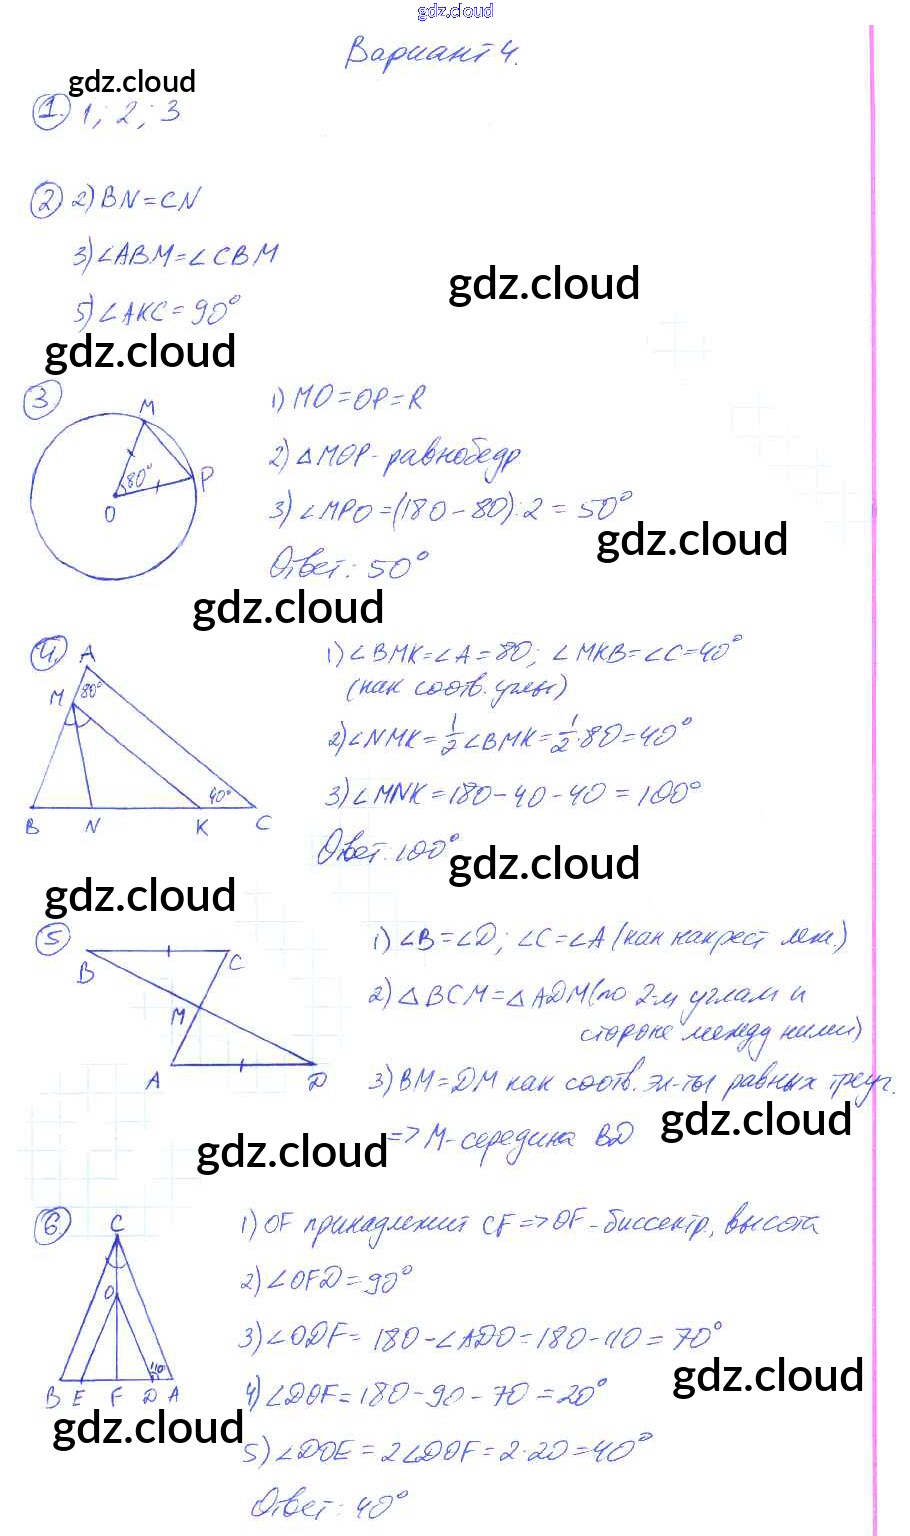 gdz.cloud
Вариант 4.
gdz.cloud
1. 1; 2; 3
2 2) BN=CN
3) ∠ABM=∠CBM
gdz.cloud
5) ∠AKC=90°
gdz.cloud
3 1) MO=OP=R
M
2) △MOP-равнобедр
80°
P
O
3) ∠MPO=(180-80):2=50°
gdz.cloud
Ответ: 50°
gdz.cloud
4. 1) ∠BMK=∠A=80; ∠MKB=∠C=40°
A
(как соотв. углы)
M 80°
2) ∠NMK=1/2∠BMK=1/2·80=40°
40°
3) ∠MNK=180-40-40=100°
B N K C
Ответ: 100°
gdz.cloud
gdz.cloud
5 1) ∠B=∠D; ∠C=∠A (как накрест леж.)
B C
2) △BCM=△ADM (по 2-м углам и
M
стороне между ними)
A D
3) BM=DM как соотв. эл-ты равных треуг.
gdz.cloud
=> M-середина BD
gdz.cloud
6 1) OF принадлежит CF=>OF-биссектр., высота
C
2) ∠OFD=90°
O
3) ∠ODF=180-∠ADO=180-110=70°
110°
gdz.cloud
B E F D A
4) ∠DOF=180-90-70=20°
gdz.cloud
5) ∠DOE=2∠DOF=2·20=40°
Ответ: 40°